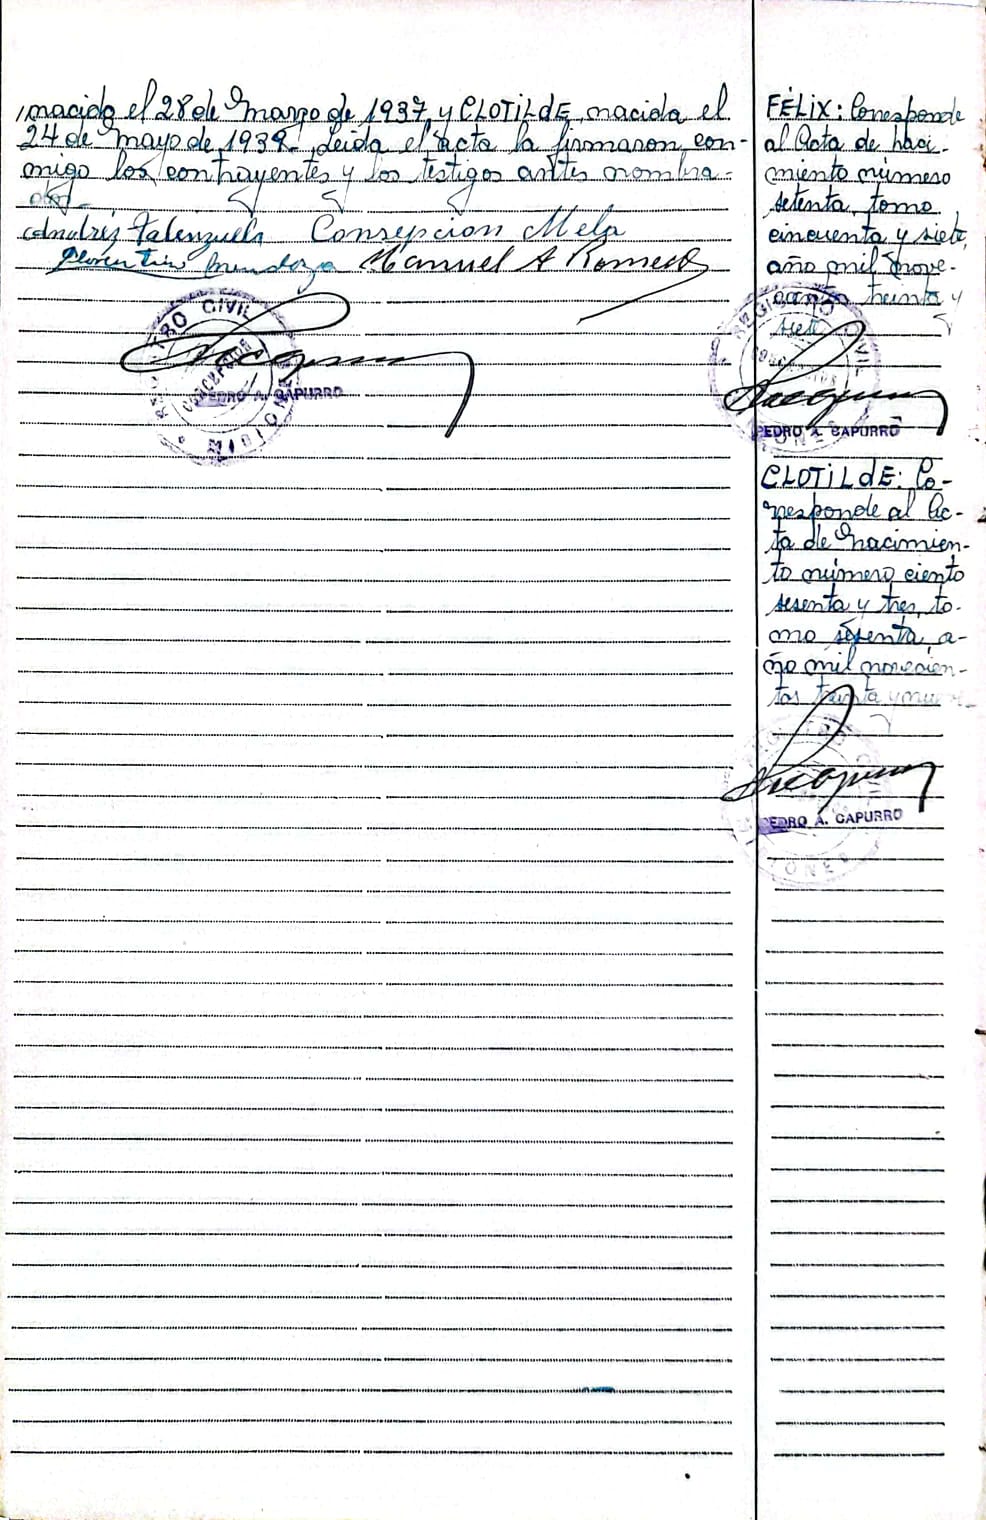 nacido el 28 de Marzo de 1937, y CLOTILDE, nacida el
24 de Mayo de 1939. Leida el acta la firmaron con-
migo los contrayentes y los testigos antes nombra-
dos.-
Andréz Falenzuela Consepcion Mela
Florentin Mendoza Manuel A Romero
REGISTRO CIVIL
CONCEPCION
MISIONES
PEDRO A. CAPURRO
FÉLIX: Corresponde
al Acta de Naci-
miento número
setenta, tomo
cincuenta y siete,
año mil nove-
cientos treinta y
siete
REGISTRO CIVIL
PEDRO A. CAPURRO
CLOTILdE: Co-
rresponde al Ac-
ta de Nacimien-
to número ciento
sesenta y tres, to-
mo sesenta, a-
ño mil novecien-
tos treinta y nueve.-
PEDRO A. CAPURRO